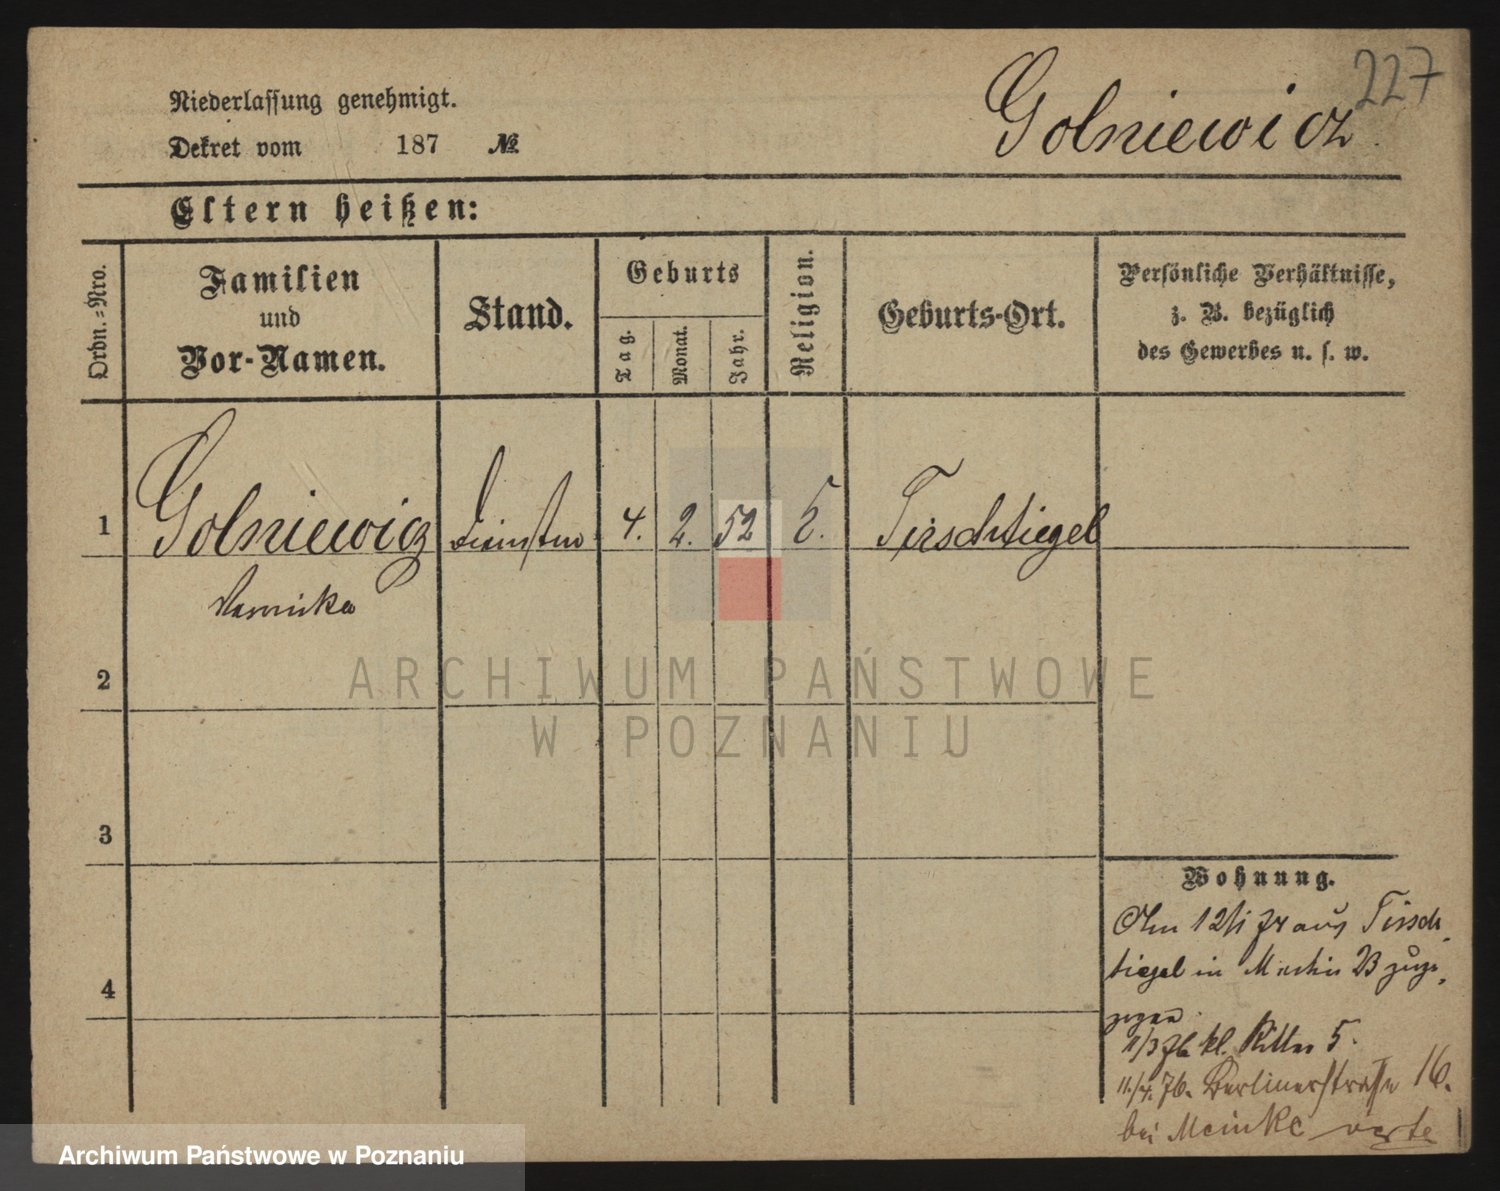 227
Niederlassung genehmigt.
Golniewicz
Dekret vom 187 №
Eltern heißen:
Ordn.=Nro.
Familien
und
Vor-Namen.
Stand.
Geburts
Tag.
Monat.
Jahr.
Religion.
Geburts-Ort.
Persönliche Verhältnisse,
z. B. bezüglich
des Gewerbes u. s. w.
1 Golniewicz 4. 2. 52 Tirschtiegel
2
3
4
ARCHIWUM PAŃSTWOWE
W POZNANIU
Wohnung.
Am 12/1 74 aus Tirsch
tiegel in Martin 23 zuge
zogen
11/3 76 kl. Ritter 5.
11./4. 76. Berlinerstraße 16.
bei Meinke verte
Archiwum Państwowe w Poznaniu